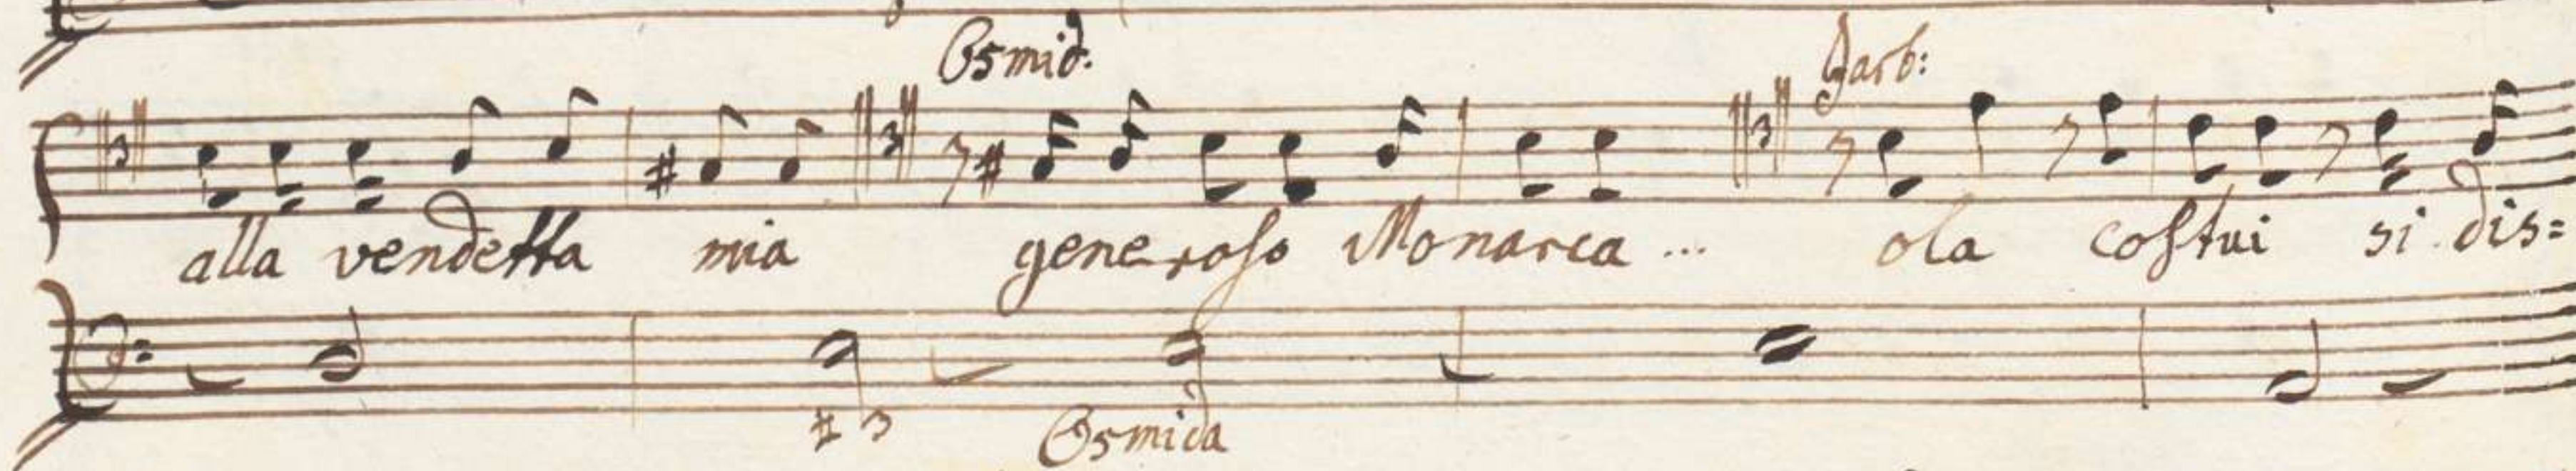 Osmid. Jarb:
alla vendetta mia generoso Monarca ... ola costui si dis=
#3 Osmida